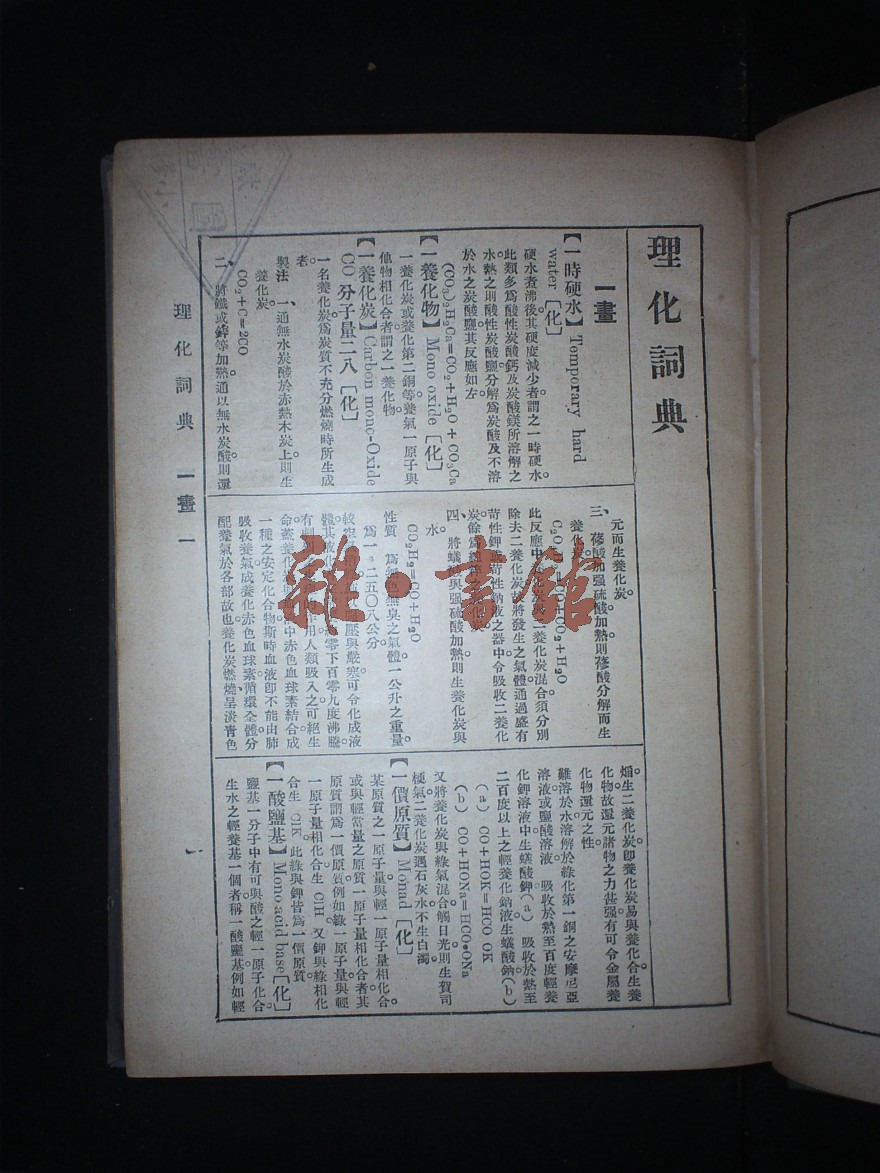 理化詞典
一畫
【一時硬水】Temporary hard
water [化]
硬水煮沸後其硬度減少者謂之一時硬水。
此類多爲酸性炭酸鈣及炭酸鎂所溶解之
水熱之則酸性炭酸鹽分解爲炭酸及不溶
於水之炭酸鹽其反應如左
(CO₃)₂H₂Ca=CO₂+H₂O+CO₃Ca
【一養化物】Mono oxide [化]
一養化炭或養化第二銅等養氣一原子與
他物相化合者謂之一養化物。
【一養化炭】Carbon monc-Oxide
CO 分子量二八 [化]
一名養化炭爲炭質不充分燃燒時所生成
者。
製法 一、通無水炭酸於赤熱木炭上則生
養化炭。
CO₂+C=2CO
二、將鐵或鋅等加熱通以無水炭酸則還
元而生養化炭。
三、蓚酸加强硫酸加熱則蓚酸分解而生
養化炭。
+CO₂+H₂O
此反應中 養化炭混合須分別
除去二養化炭 將發生之氣體通過盛有
苛性鉀或苛性鈉液之器中令吸收二養化
炭餘
四、將蟻酸與强硫酸加熱則生養化炭與
水。
CO₂H₂=CO+H₂O
性質 爲無色無臭之氣體一公升之重量
爲一·二五〇八公分
較空 壓與嚴寒可令化成液
體其液化 零下百零九度沸騰
有 用人類吸入之可絕生
命蓋養化炭 中赤色血球素結合成
一種之安定化合物斯時血液卽不能由肺
吸收養氣成養化赤色血球素循環全體分
配養氣於各部故也養化炭燃燒呈淡青色
焰。生二養化炭。卽養化炭易與養化合生養
化物故還元諸物之力甚强有可令金屬養
化物還元之性。
難溶於水溶解於綠化第一銅之安摩尼亞
溶液或鹽酸溶液。吸收於熱至百度輕養
化鉀溶液中生蟻酸鉀(a)吸收於熱至
二百度以上之輕養化鈉液生蟻酸鈉(b)
(a) CO+HOK=HCO OK
(b) CO+HONa=HCO·ONa
又將養化炭與綠氣混合觸日光則生賀司
梗氣二養化炭遇石灰水不生白濁。
【一價原質】Monad [化]
某原質之一原子量與輕一原子量相化合
或與輕當量之原質一原子量相化合者其
原質謂爲一價原質例如綠一原子量與輕
一原子量相化合生 ClH 又鉀與綠相化
合生 ClK 此綠與鉀皆爲一價原質
【一酸鹽基】Mono acid base [化]
鹽基一分子中有可與酸之輕一原子化合
生水之輕養基一個者稱一酸鹽基例如輕
理化詞典 一畫 一
雜·書館